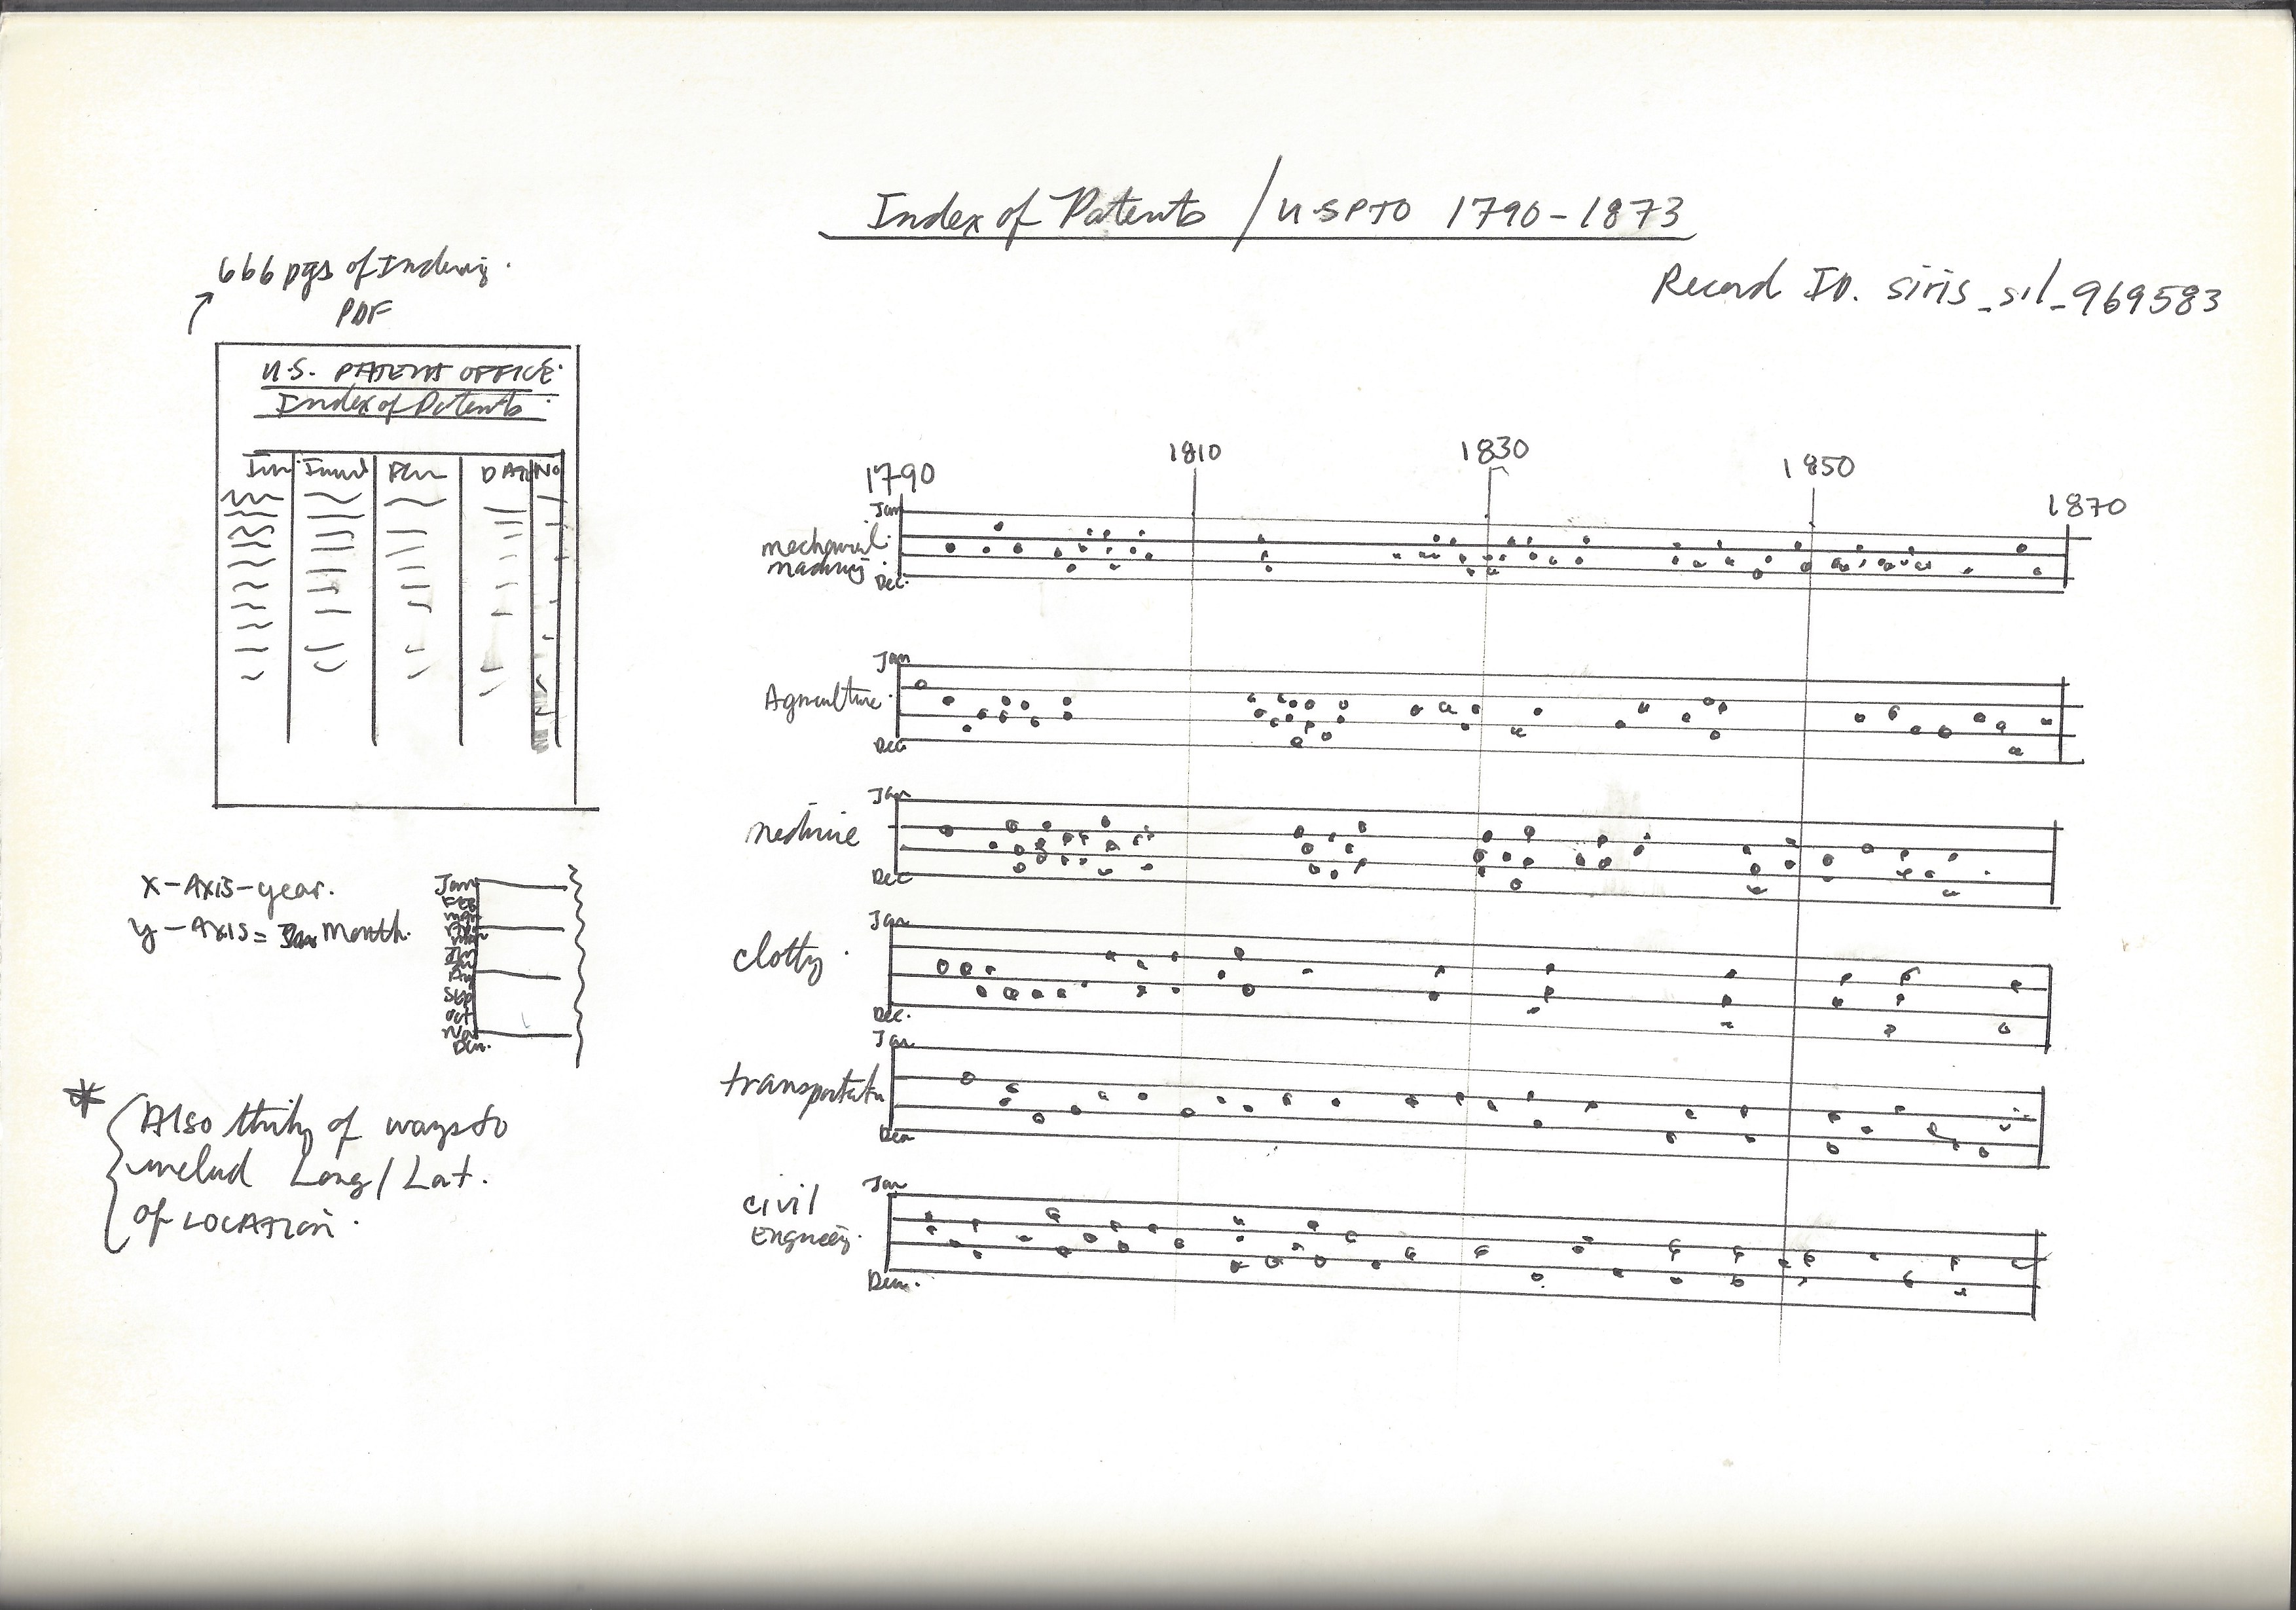 Index of Patents / U.S.P.T.O 1790-1873
Record ID. siris_sil_969583
666 pgs of Indexing.
PDF
U.S. PATENT OFFICE.
Index of Patents.
No
X-AXIS-year.
Y-AXIS = Month.
Jan
Feb
mar
Sep
Oct
Nov
Dec.
* Also thinkg of ways to
includ Long/Lat.
of LOCATION.
1790
1810
1830
1850
1870
Jan
mechanical
Dec.
Jan
Agriculture.
Dec
Jan
Medicine
Dec
Jan
clothg.
Dec.
Jan
transportatn
Dec
Jan
civil
Engineeg.
Dec.